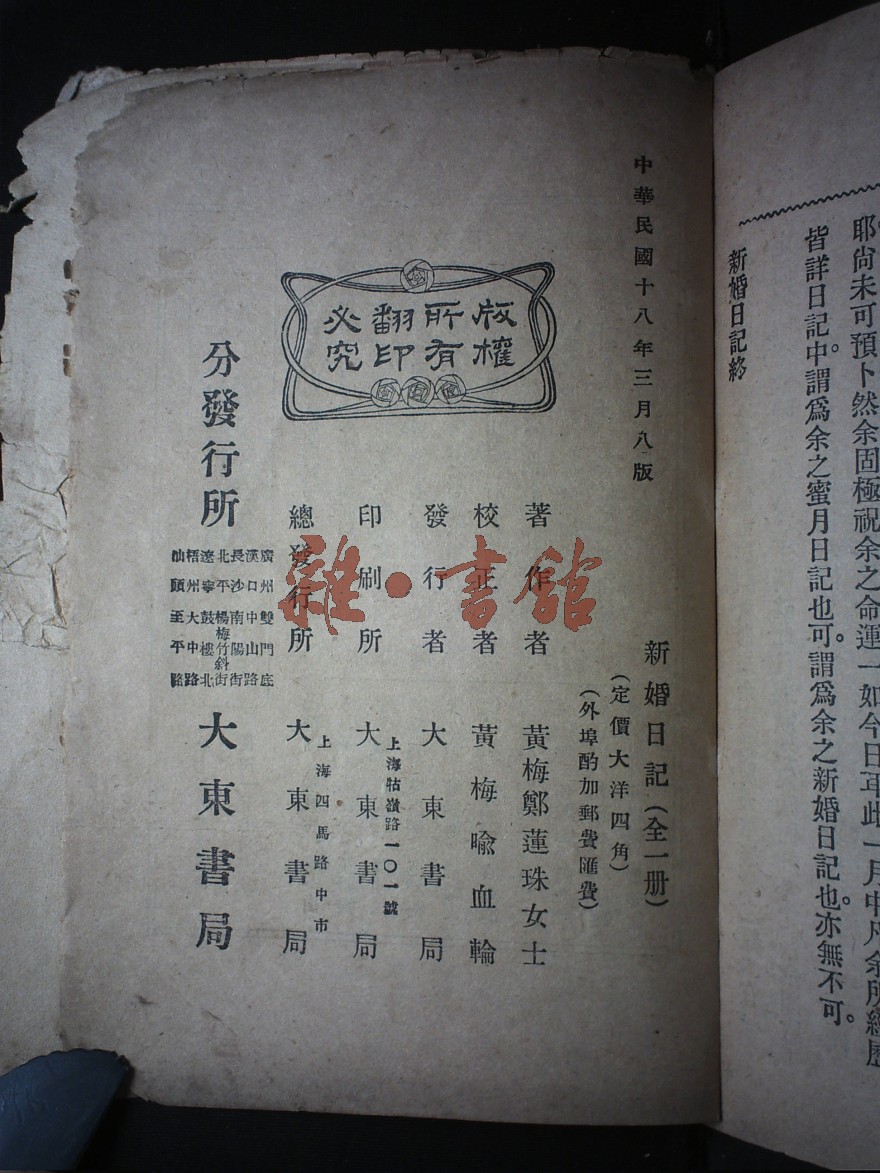 耶尚未可預卜然余固極祝余之命運一如今日耳此一月中凡余所經歷
皆詳日記中。謂爲余之蜜月日記也可。謂爲余之新婚日記也。亦無不可。
新婚日記終
中華民國十八年三月八版
新婚日記(全一册)
(定價大洋四角)
(外埠酌加郵費匯費)
版權
所有
翻印
必究
著作者 黃梅鄭蓮珠女士
校正者 黃梅喩血輪
發行者 大東書局
上海牯嶺路一〇一號
印刷所 大東書局
上海四馬路中市
總發行所 大東書局
分發行所
廣州雙門底
漢口中山路
長沙南陽街
北平楊梅竹斜街
遼寧鼓樓北
梧州大中路
汕頭至平路
大東書局
雜·書館